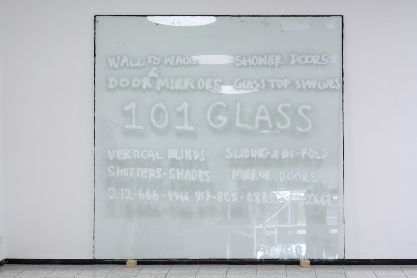 WALL TO WALL SHOWER DOORS
&
DOOR MIRRORS GLASS TOP SHELVES
101 GLASS
VERTICAL BLINDS SLIDING & BI-FOLD
SHUTTERS-SHADES MIRROR DOORS
212-666-4946 917-805-088